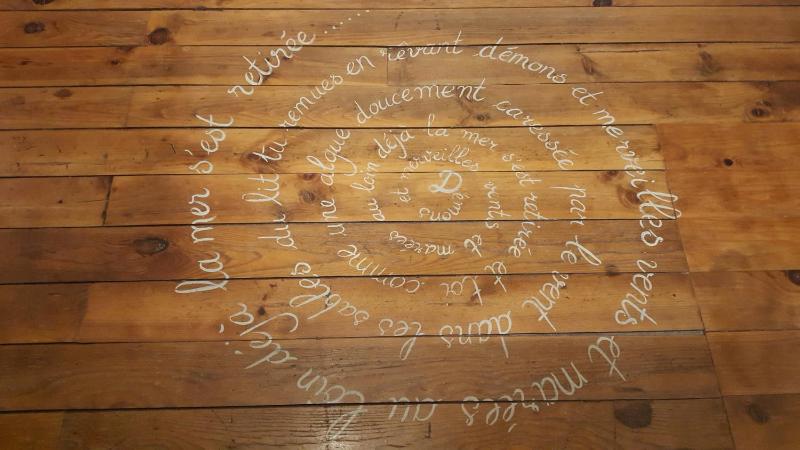 Démons et merveilles vents et marées au loin déjà la mer s'est retirée et toi comme une algue doucement caressée par le vent dans les sables du lit tu remues en rêvant démons et merveilles vents et marées au loin déjà la mer s'est retirée......